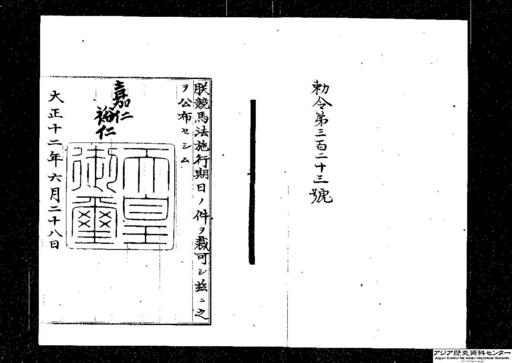 勅令第三百二十三號
朕競馬法施行期日ノ件ヲ裁可シ茲ニ之
ヲ公布セシム
嘉仁
裕仁
天皇
御璽
大正十二年六月二十八日
アジア歴史資料センター
Japan Center for Asian Historical Records